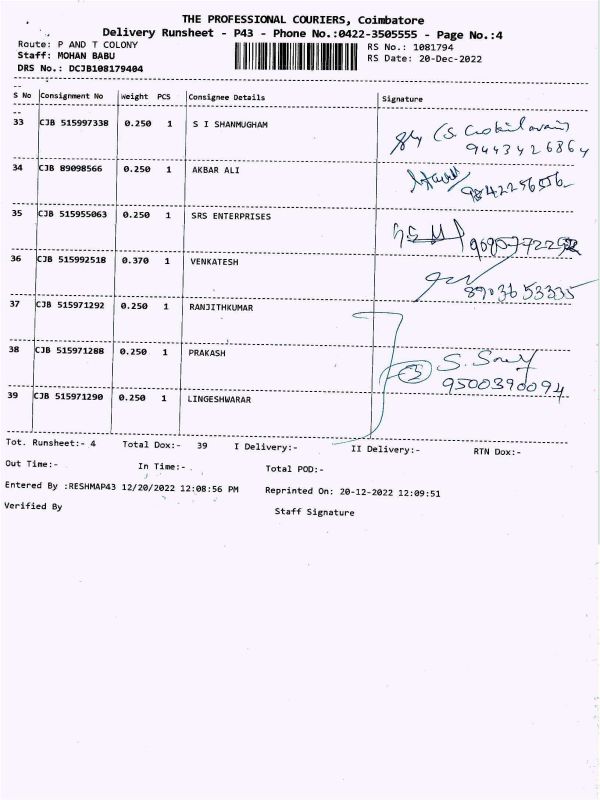 THE PROFESSIONAL COURIERS, Coimbatore
Delivery Runsheet - P43 - Phone No.:0422-3505555 - Page No.:4
Route: P AND T COLONY
RS No.: 1081794
Staff: MOHAN BABU
RS Date: 20-Dec-2022
DRS No.: DCJB108179404
S No Consignment No Weight PCS Consignee Details Signature
33 CJB 515997338 0.250 1 S I SHANMUGHAM
9443426864
34 CJB 89098566 0.250 1 AKBAR ALI
35 CJB 515955063 0.250 1 SRS ENTERPRISES
36 CJB 515992518 0.370 1 VENKATESH
8903653335
37 CJB 515971292 0.250 1 RANJITHKUMAR
38 CJB 515971288 0.250 1 PRAKASH
3
9500390094
39 CJB 515971290 0.250 1 LINGESHWARAR
Tot. Runsheet:- 4 Total Dox:- 39 I Delivery:- II Delivery:- RTN Dox:-
Out Time:- In Time:- Total POD:-
Entered By :RESHMAP43 12/20/2022 12:08:56 PM Reprinted On: 20-12-2022 12:09:51
Verified By Staff Signature